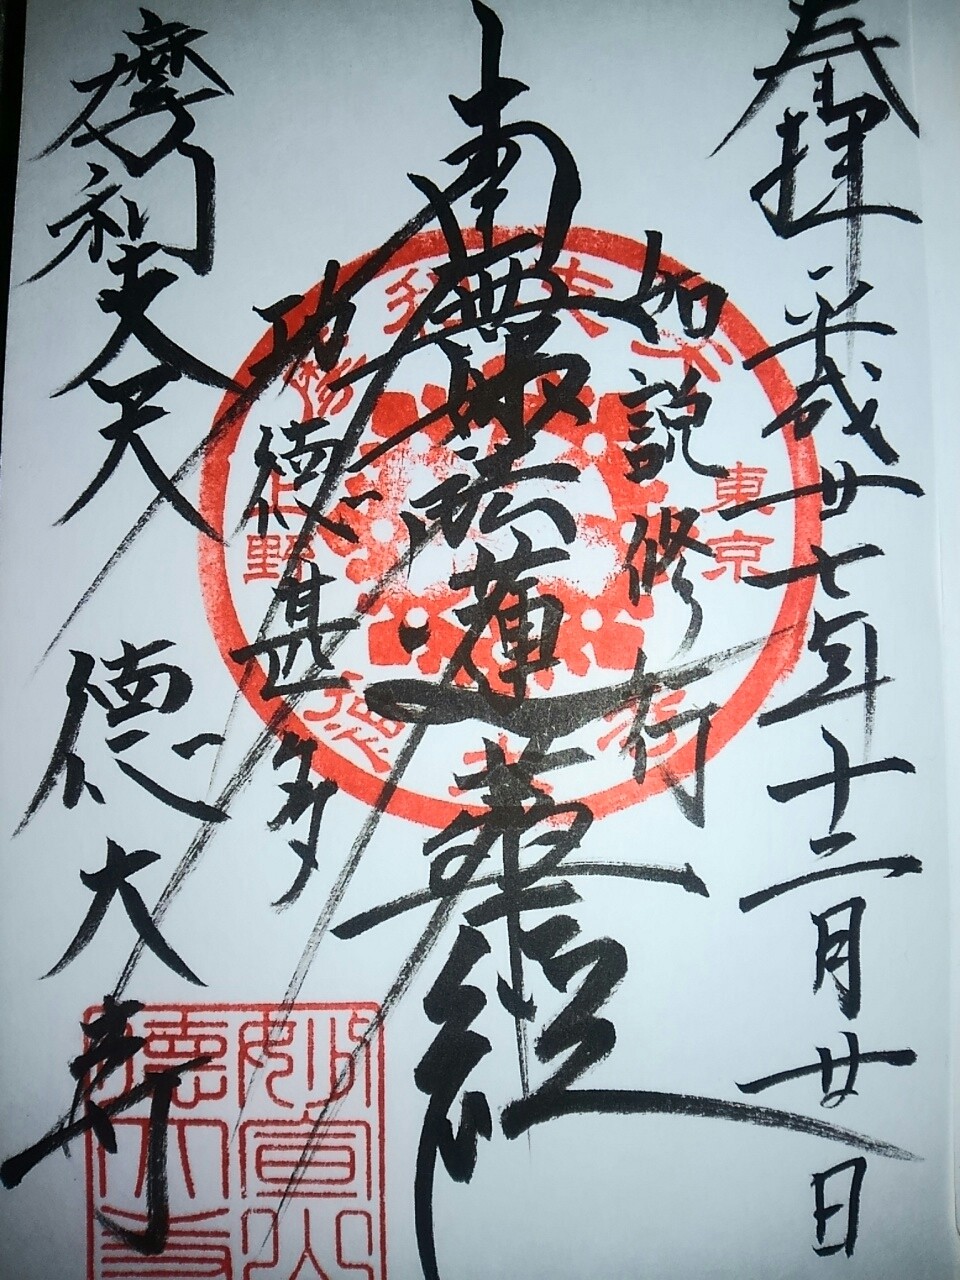 奉拝 平成廿七年十二月廿日
如説修行
南無妙法蓮華経
功徳甚多
摩利支天 徳大寺
東京
上野
妙宣山
徳大寺